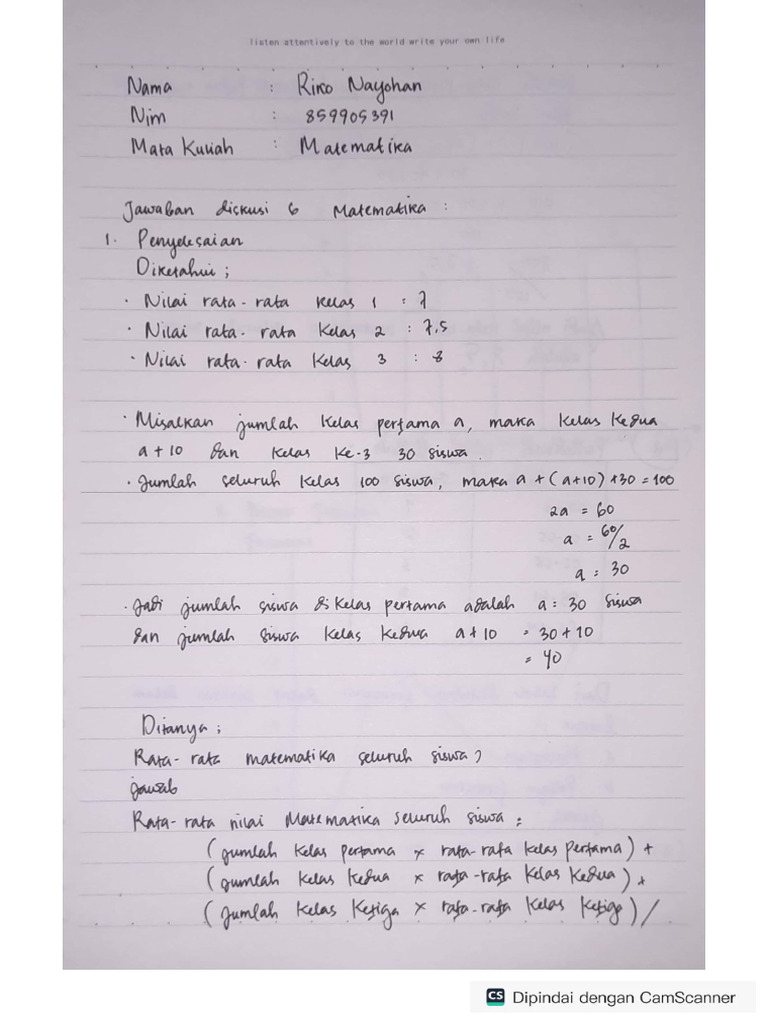 listen attentively to the world write your own life
Nama : Riko Nayohan
Nim : 859905391
Mata Kuliah : Matematika
Jawaban diskusi 6 Matematika :
1. Penyelesaian
Diketahui ;
· Nilai rata-rata kelas 1 : 7
· Nilai rata-rata kelas 2 : 7,5
· Nilai rata-rata kelas 3 : 8
· Misalkan jumlah kelas pertama a, maka kelas kedua
a + 10 dan kelas ke-3 30 siswa.
· Jumlah seluruh kelas 100 siswa, maka a + (a+10) +30 = 100
2a = 60
a = 60/2
a = 30
· Jadi jumlah siswa di kelas pertama adalah a = 30 siswa
dan jumlah siswa kelas kedua a + 10 = 30 + 10
= 40
Ditanya ;
Rata-rata matematika seluruh siswa?
Jawab
Rata-rata nilai Matematika seluruh siswa =
(jumlah kelas pertama × rata-rata kelas pertama) +
(jumlah kelas kedua × rata-rata kelas kedua) +
(jumlah kelas ketiga × rata-rata kelas ketiga) /
CS Dipindai dengan CamScanner